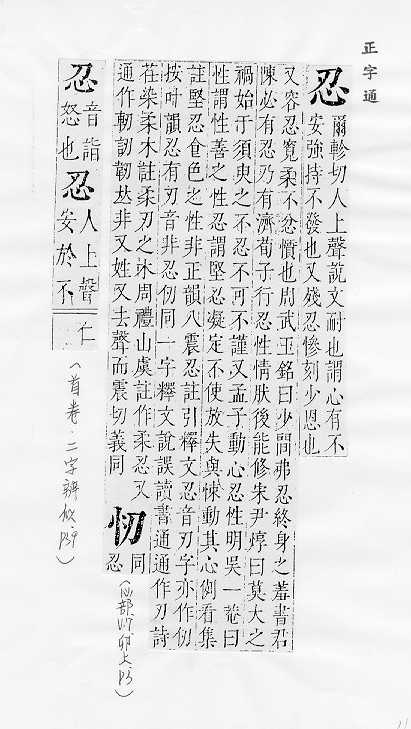 正字通
忍 爾軫切人上聲說文耐也謂心有不
安強持不發也又殘忍慘刻少恩也
又容忍寬柔不忿憤也周武王銘曰少間弗忍終身之羞書君
陳必有忍乃有濟荀子行忍性情肰後能修朱尹焞曰莫大之
禍始于須臾之不忍不可不謹又孟子動心忍性明吳一菴曰
性謂性善之性忍謂堅忍凝定不使放失與悚動其心例看集
註堅忍食色之性非正韻八震忍註引釋文忍音刃字亦作仞
按叶韻忍有刃音非忍仞同一字釋文說誤讀書通通作刃詩
荏染柔木註柔刃之木周禮山虞註作柔忍又
通作韌訒韧𠀤非又姓又去聲而震切義同
㣼 同
忍
忍 音詣
怒也
忍 人上聲仁
安於不
(首卷.二字辨似 p39)